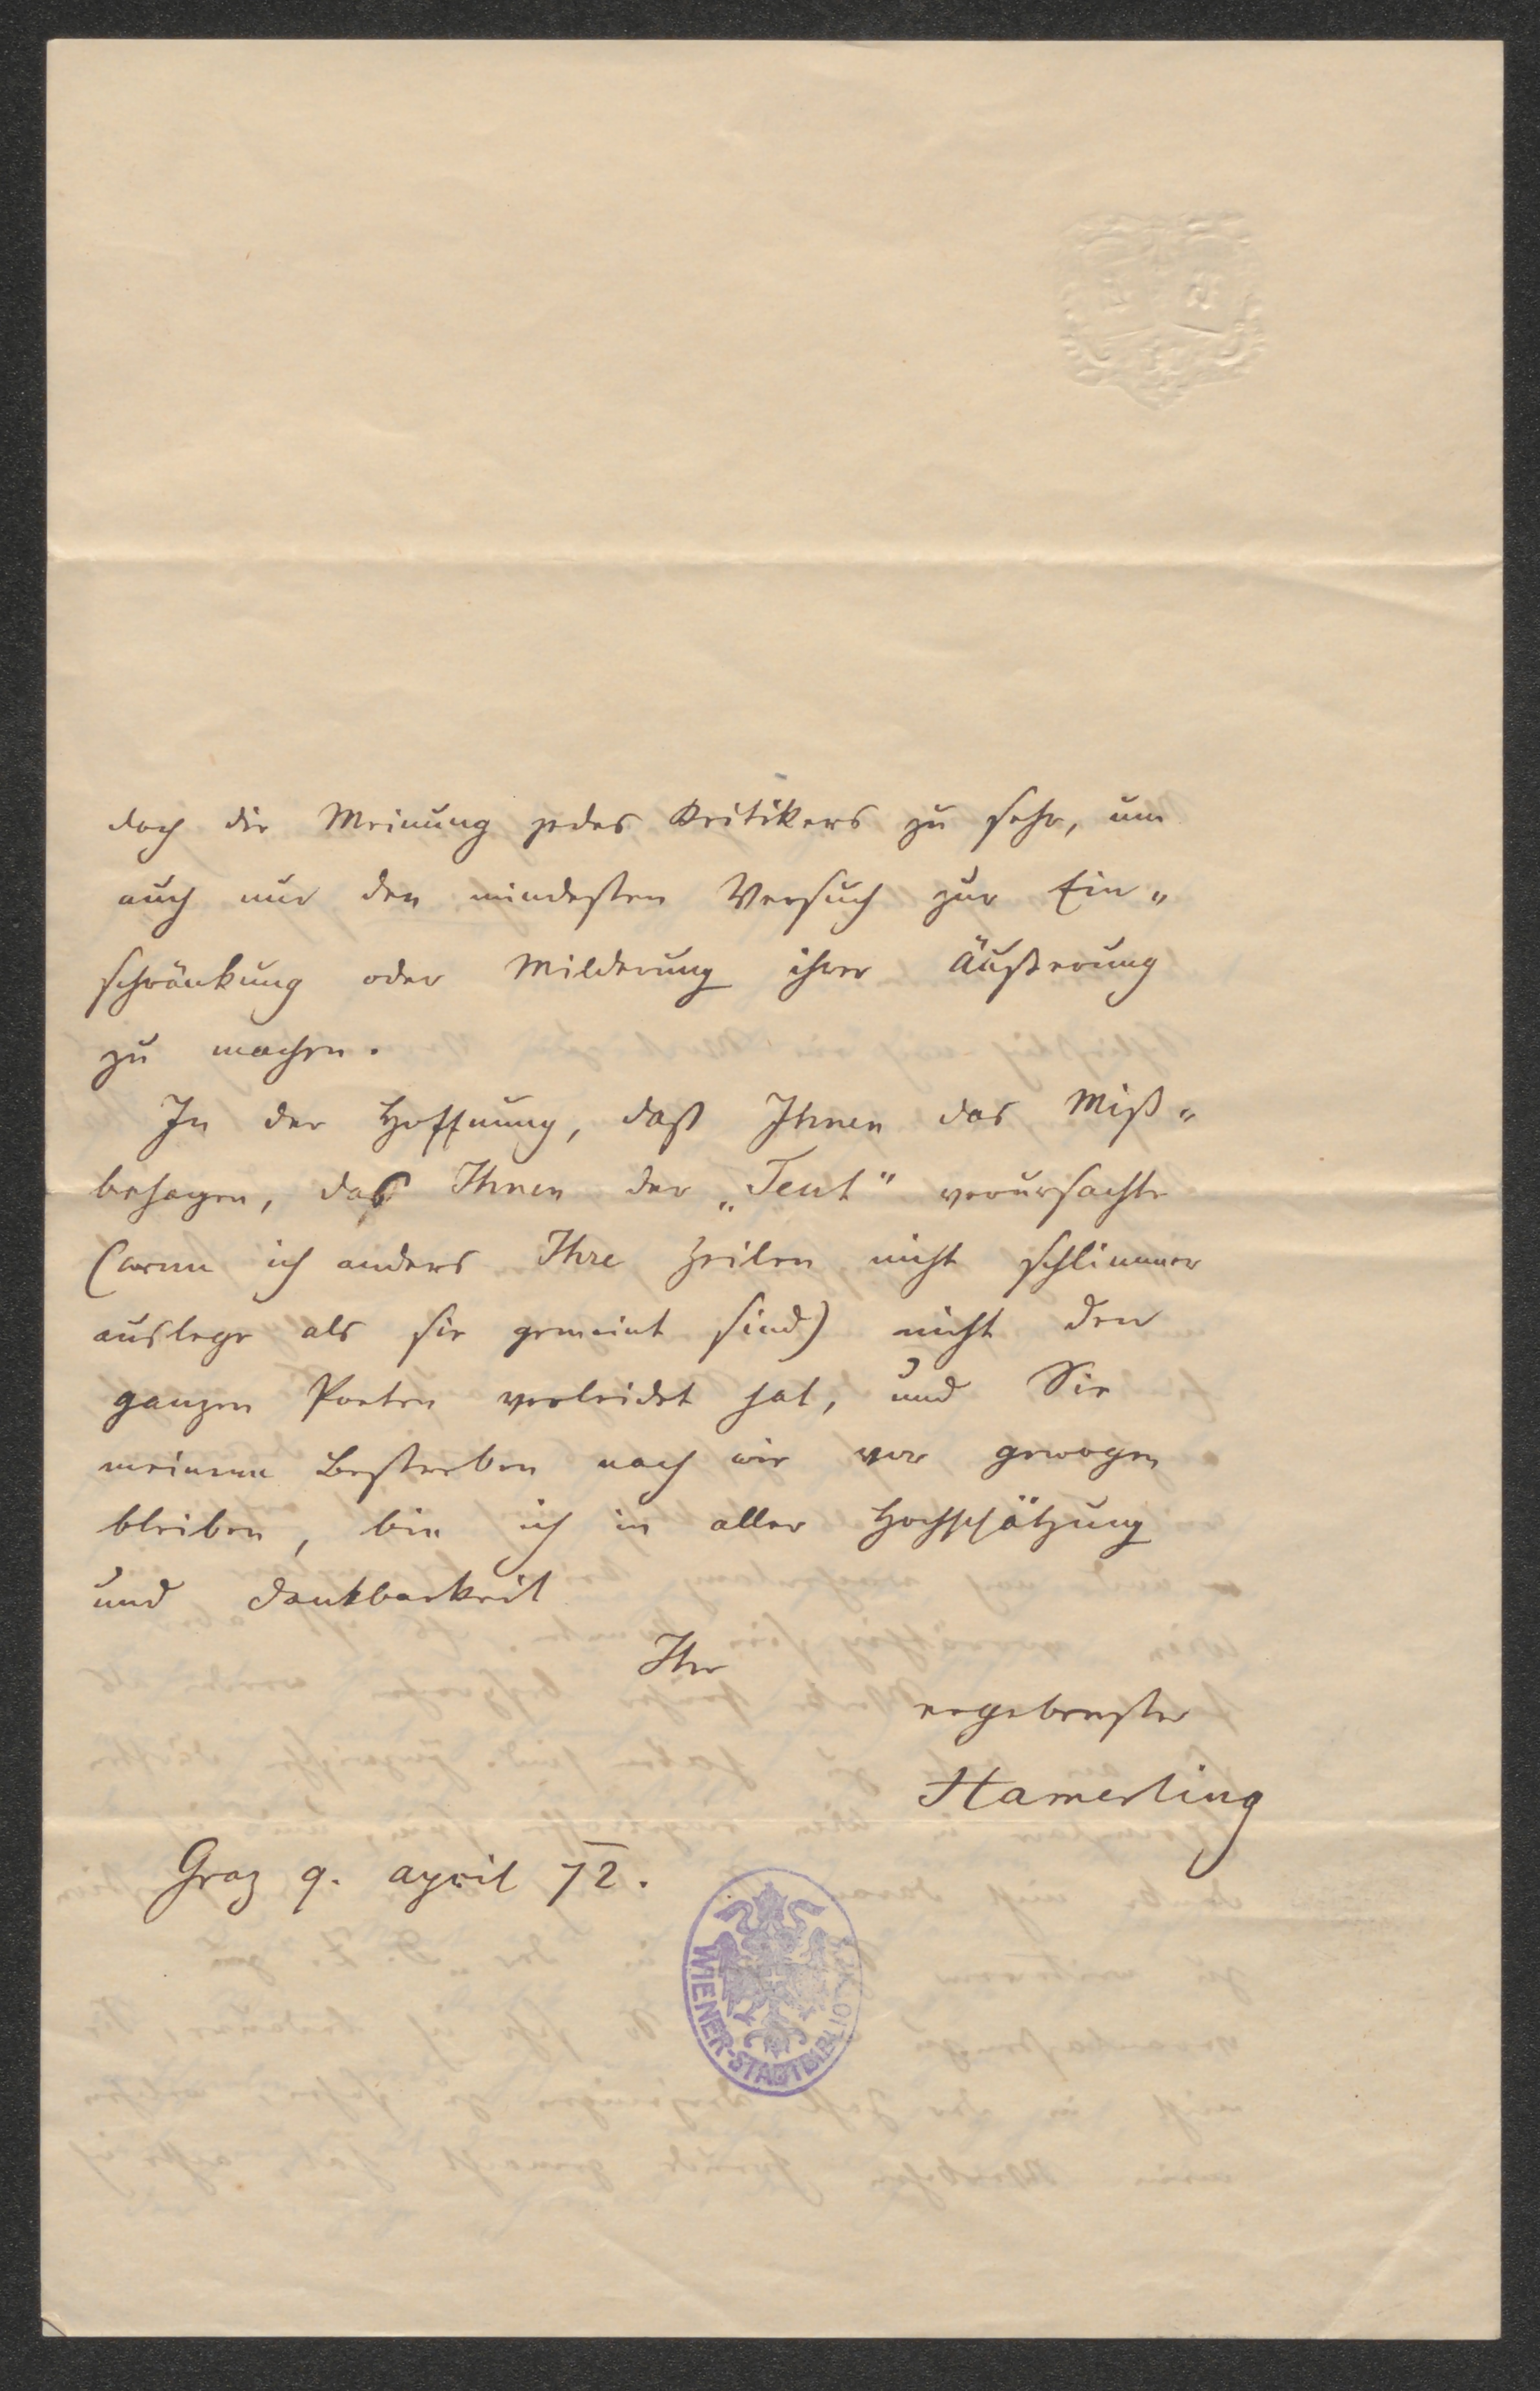 doch die Meinung jedes Kritikers zu sehr, um
auch nur den mindesten Versuch zur Ein„
schränkung oder Milderung ihrer Äußerung
zu machen.
In der Hoffnung, daß Ihnen das Miß„
behagen, das Ihnen der „Teut“ verursachte
(wenn ich anders Ihre Zeilen nicht schlimmer
auslege als sie gemeint sind) nicht den
ganzen Poeten verleidet hat, und Sie
meinem Bestreben nach wie vor gewogen
bleiben, bin ich in aller Hochschätzung
und Dankbarkeit
Ihr
ergebenster
Hamerling
Graz 9. April 72.
WIENER-STADTBIBLIOTHEK